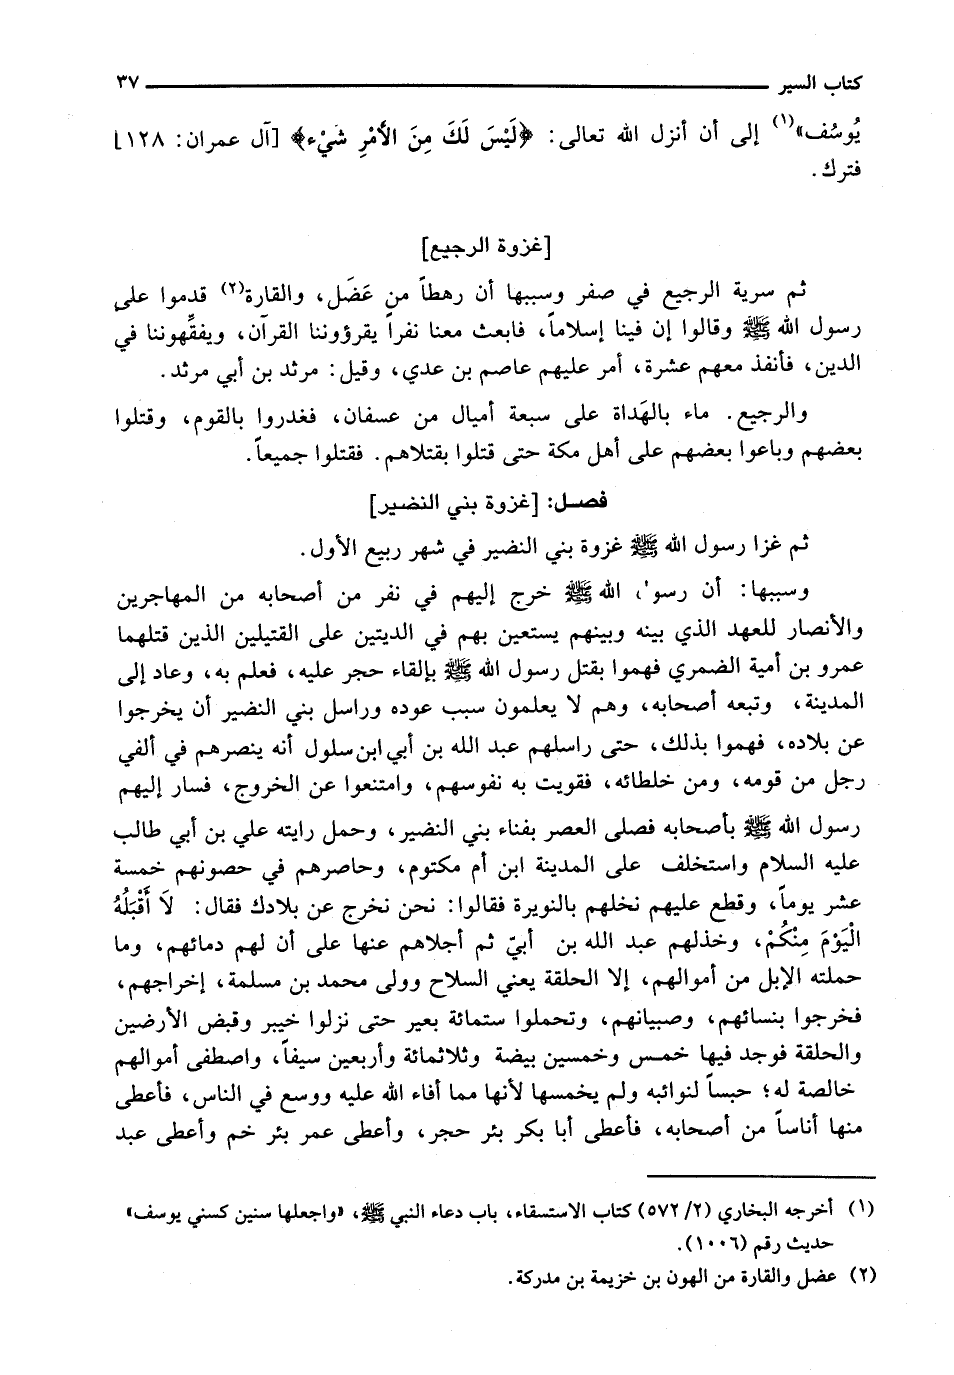 كتاب السير ٣٧
يُوسُف»(١) إلى أن أنزل الله تعالى: ﴿لَيْسَ لَكَ مِنَ الأَمْرِ شَيْء﴾ [آل عمران: ١٢٨]
فترك.
[غزوة الرجيع]
ثم سرية الرجيع في صفر وسببها أن رهطاً من عَضَل، والقارة(٢) قدموا على
رسول الله ﷺ وقالوا إن فينا إسلاماً، فابعث معنا نفراً يقرؤوننا القرآن، ويفقِّهوننا في
الدين، فأنفذ معهم عشرة، أمر عليهم عاصم بن عدي، وقيل: مرثد بن أبي مرثد.
والرجيع. ماء بالهَداة على سبعة أميال من عسفان، فغدروا بالقوم، وقتلوا
بعضهم وباعوا بعضهم على أهل مكة حتى قتلوا بقتلاهم. فقتلوا جميعاً.
فصل: [غزوة بني النضير]
ثم غزا رسول الله ﷺ غزوة بني النضير في شهر ربيع الأول.
وسببها: أن رسول الله ﷺ خرج إليهم في نفر من أصحابه من المهاجرين
والأنصار للعهد الذي بينه وبينهم يستعين بهم في الديتين على القتيلين الذين قتلهما
عمرو بن أمية الضمري فهموا بقتل رسول الله ﷺ بإلقاء حجر عليه، فعلم به، وعاد إلى
المدينة، وتبعه أصحابه، وهم لا يعلمون سبب عوده وراسل بني النضير أن يخرجوا
عن بلاده، فهموا بذلك، حتى راسلهم عبد الله بن أبي ابن سلول أنه ينصرهم في ألفي
رجل من قومه، ومن خلطائه، فقويت به نفوسهم، وامتنعوا عن الخروج، فسار إليهم
رسول الله ﷺ بأصحابه فصلى العصر بفناء بني النضير، وحمل رايته علي بن أبي طالب
عليه السلام واستخلف على المدينة ابن أم مكتوم، وحاصرهم في حصونهم خمسة
عشر يوماً، وقطع عليهم نخلهم بالنويرة فقالوا: نحن نخرج عن بلادك فقال: لَا أَقْبَلُهُ
الْيَوْمَ مِنْكُمْ، وخذلهم عبد الله بن أبيّ ثم أجلاهم عنها على أن لهم دمائهم، وما
حملته الإبل من أموالهم، إلا الحلقة يعني السلاح وولى محمد بن مسلمة، إخراجهم،
فخرجوا بنسائهم، وصبيانهم، وتحملوا ستمائة بعير حتى نزلوا خيبر وقبض الأرضين
والحلقة فوجد فيها خمس وخمسين بيضة وثلاثمائة وأربعين سيفاً، واصطفى أموالهم
خالصة له؛ حبساً لنوائبه ولم يخمسها لأنها مما أفاء الله عليه ووسع في الناس، فأعطى
منها أناساً من أصحابه، فأعطى أبا بكر بئر حجر، وأعطى عمر بئر خم وأعطى عبد
(١) أخرجه البخاري (٢/ ٥٧٢) كتاب الاستسقاء، باب دعاء النبي ﷺ، «واجعلها سنين كسني يوسف»
حديث رقم (١٠٠٦).
(٢) عضل والقارة من الهون بن خزيمة بن مدركة.